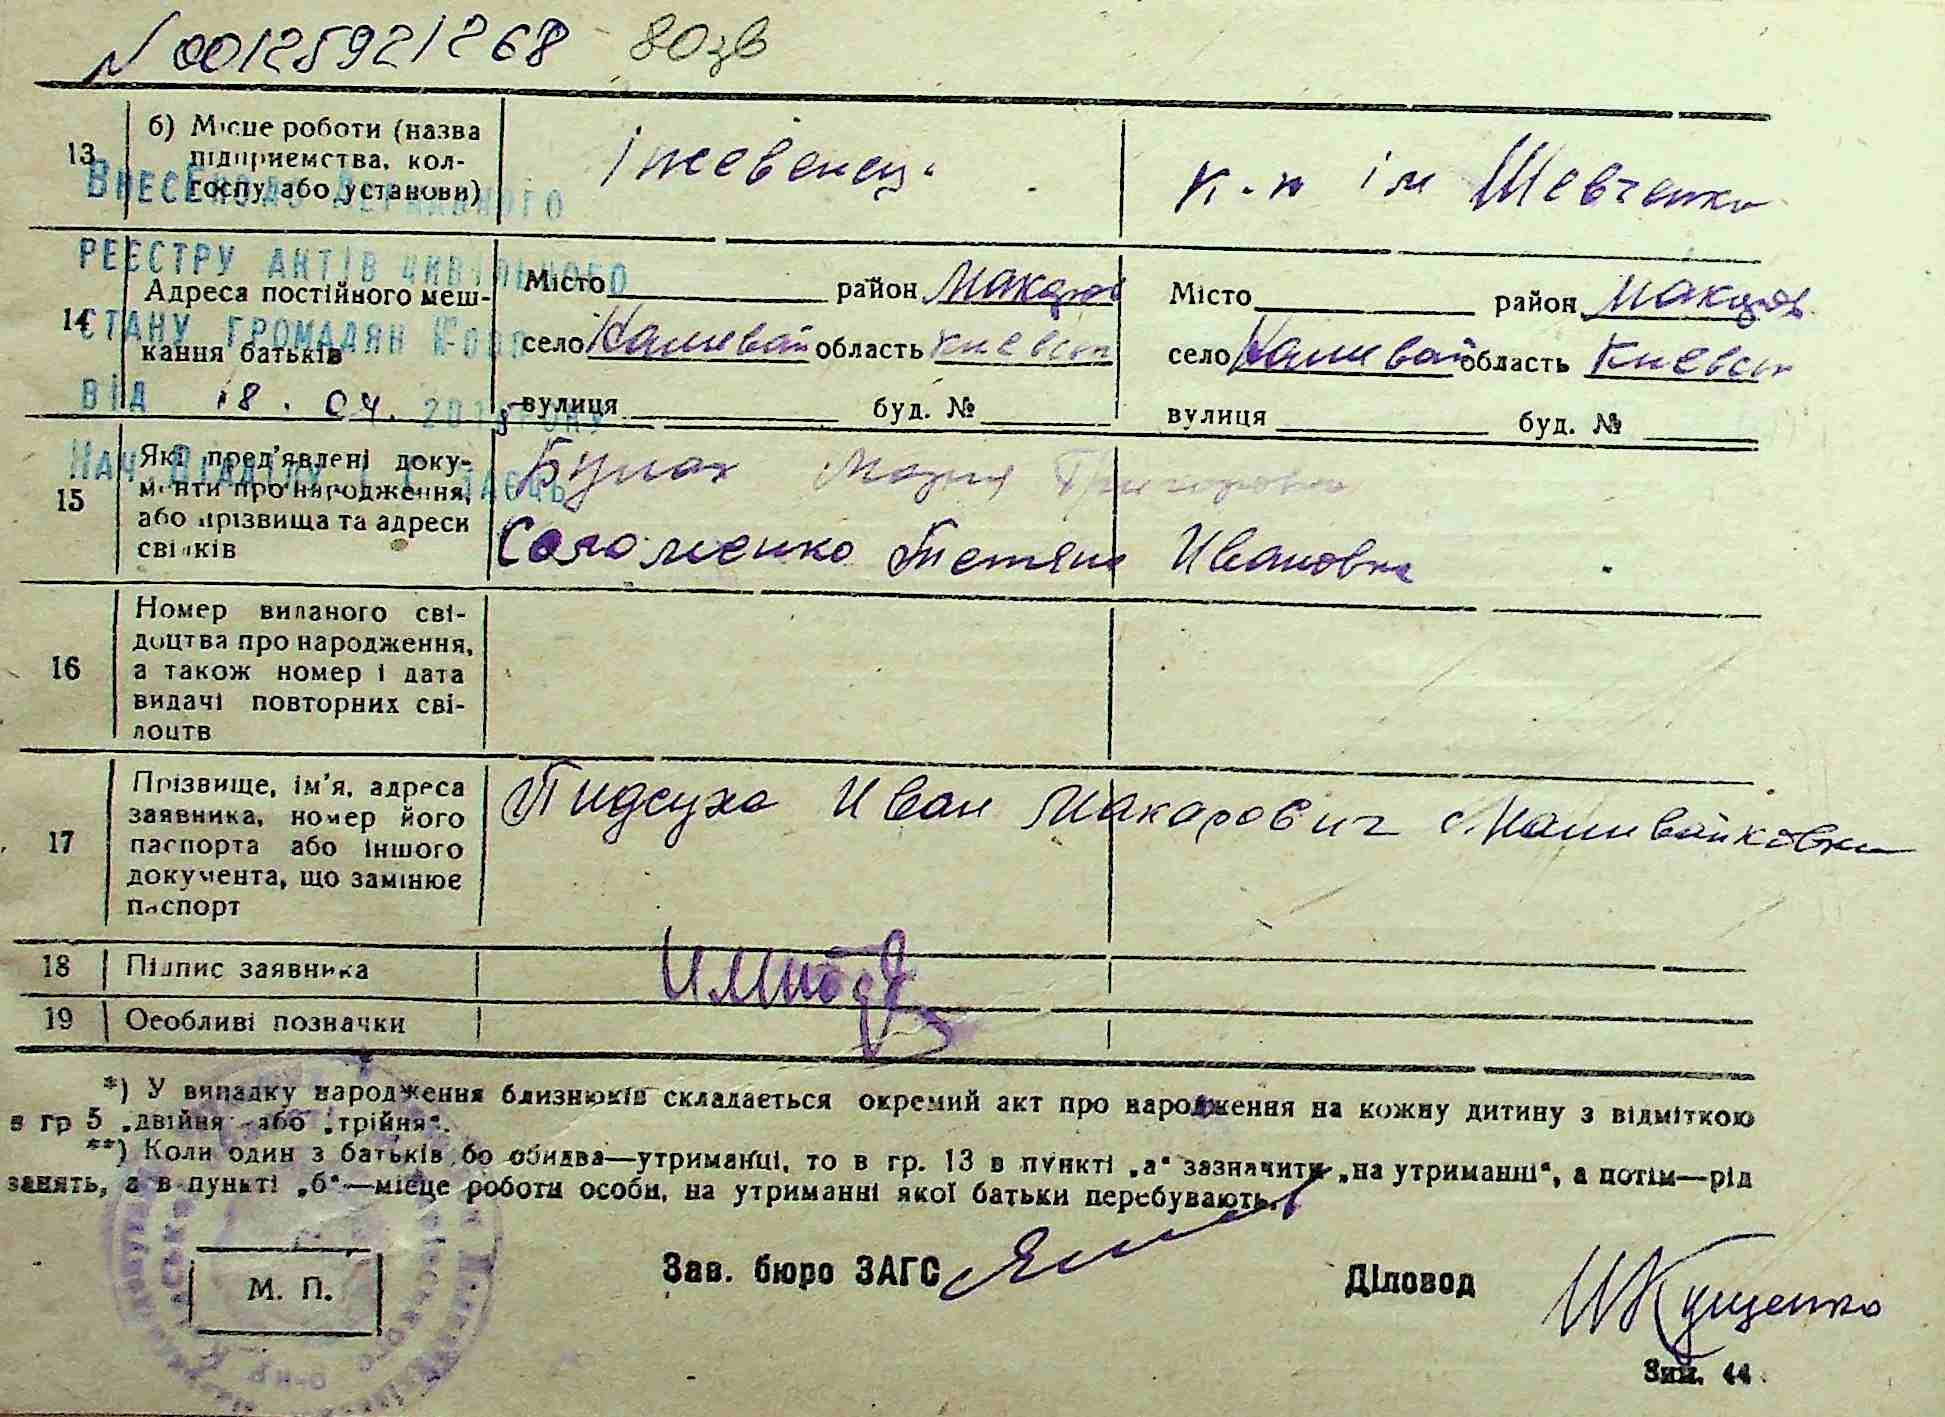 N 00125921268 80зв
13 б) Місце роботи (назва підприемства, кол-госпу або установи) к.-п ім Шевченка
Внесено до Державного
реєстру актів цивільного
стану громадян
від 18. 04. року
Нач. Відділу
14 Адреса постійного меш-
кання батьків
Місто район Макаров Місто район Макаров
село Наливай область Киевск село Наливай область Киевск
вулиця буд. № вулиця буд. №
15 Які пред'явлені доку-
менти про народження,
або прізвища та адреси
свідків
Мария Григоровна
Соломенко Тетяна Ивановна
16 Номер виданого сві-
доцтва про народження,
а також номер і дата
видачі повторних сві-
доцтв
17 Прізвище, ім'я, адреса
заявника, номер його
паспорта або іншого
документа, що замінює
паспорт
Пидсуха Иван Макарович с. Наливайковка
18 Підпис заявника
19 Особливі позначки
*) У випадку народження близнюків складається окремий акт про народження на кожну дитину з відміткою
в гр 5 „двійня" або „трійня".
**) Коли один з батьків бо обидва—утриманці, то в гр. 13 в пункті „а" зазначити „на утриманні", а потім—рід
занять, а в пункті „б"—місце роботи особи, на утриманні якої батьки перебувають.
М. П.
Зав. бюро ЗАГС Діловод Кущенко
Зим. 44